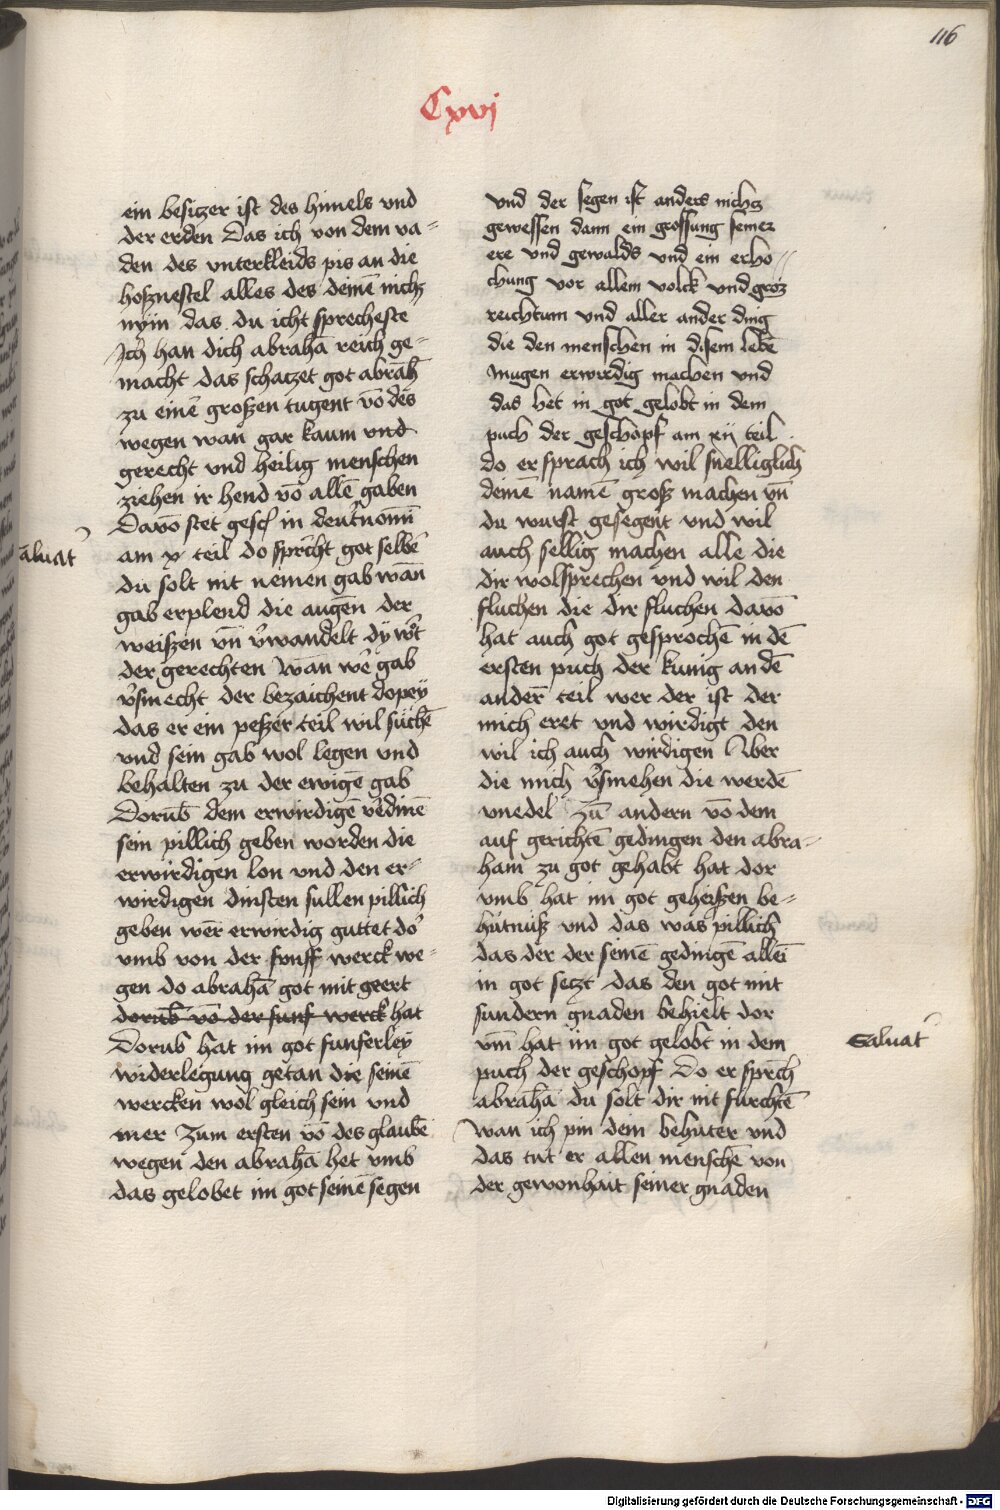 116
Cxvj
ein besiczer ist des himels vnd
der erden Das ich von dem va-
den des vnterkleids pis an die
hosznestel alles des deinē nichcz
nym das du icht sprecheste
Ich han dich abrahā reich ge-
macht das schaczet got abrahā
zu einē großen tugent vō des
wegen wan gar kaum vnd
gerecht vnd heilig menschen
ziehen ir hend vō allē gaben
Davō stet gescħ in deutnomī
am x teil do spricht got selbē
du solt nit nemen gab wan̄
gab erplend die augen der
weißen vn̄ v'wandelt dy wo't
der gerechten Wan we' gab
v'smecht der bezaichent dopey
das er ein peßer teil wil suchē
vnd sein gab wol legen vnd
behalten zu der ewigē gab
Dorūb dem erwirdigē v'dinē
sein pillich geben worden die
erwirdigen lon vnd den er-
wirdigen dinsten sullen pillich
geben wer erwirdig guttet do'
vmb von der funff werck we-
gen do abrahā got mit geert
dorūb vō der funf werck hat
Dorub hat im got funferley
widerlegung getan die seinē
wercken wol gleich sein vnd
mer Zum ersten vō des glaubē
wegen den abrahā het vmb
das gelobet im got seinē segen
āluat'
vnd der segen ist anders nichcz
gewessen dann ein grossung seiner
ere vnd gewalds vnd ein erho-
chung vor allem volck vnd groz
reichtum vnd aller ander ding
die den menschen in disem lebē
mugen erwirdig machen vnd
das het in got gelobt in dem
puch der geschopf am xij teil
do er sprach ich wil snelliglich
deinē namē groß machen vn̄
du wurst gesegent vnd wil
auch sellig machen alle die
dir wolsprechen vnd wil den
fluchen die dir fluchen davō
hat auch got gesprochē in dē
ersten puch der kunig an dē
anderē teil wer der ist der
mich eret vnd wirdigt den
wil ich auch wirdigen Aber
die mich v'smehen die werdē
vnedel Zū andern vō dem
auf gerichtē gedingen den abra-
ham zu got gehabt hat dor
vmb hat im got geheißen be-
hütnüß vnd das was pillich
das der der seinē gedingē allei
in got seczt das den got mit
sundern gnaden behielt dor
vm̄ hat im got gelobt in dem
puch der geschopf Do er sprch
abrahā du solt dir nit furchtē
wan ich pin dein behuter vnd
das tut er allen menschē von
der gewonhait seiner gnaden
Saluat'
Digitalisierung gefördert durch die Deutsche Forschungsgemeinschaft - DFG